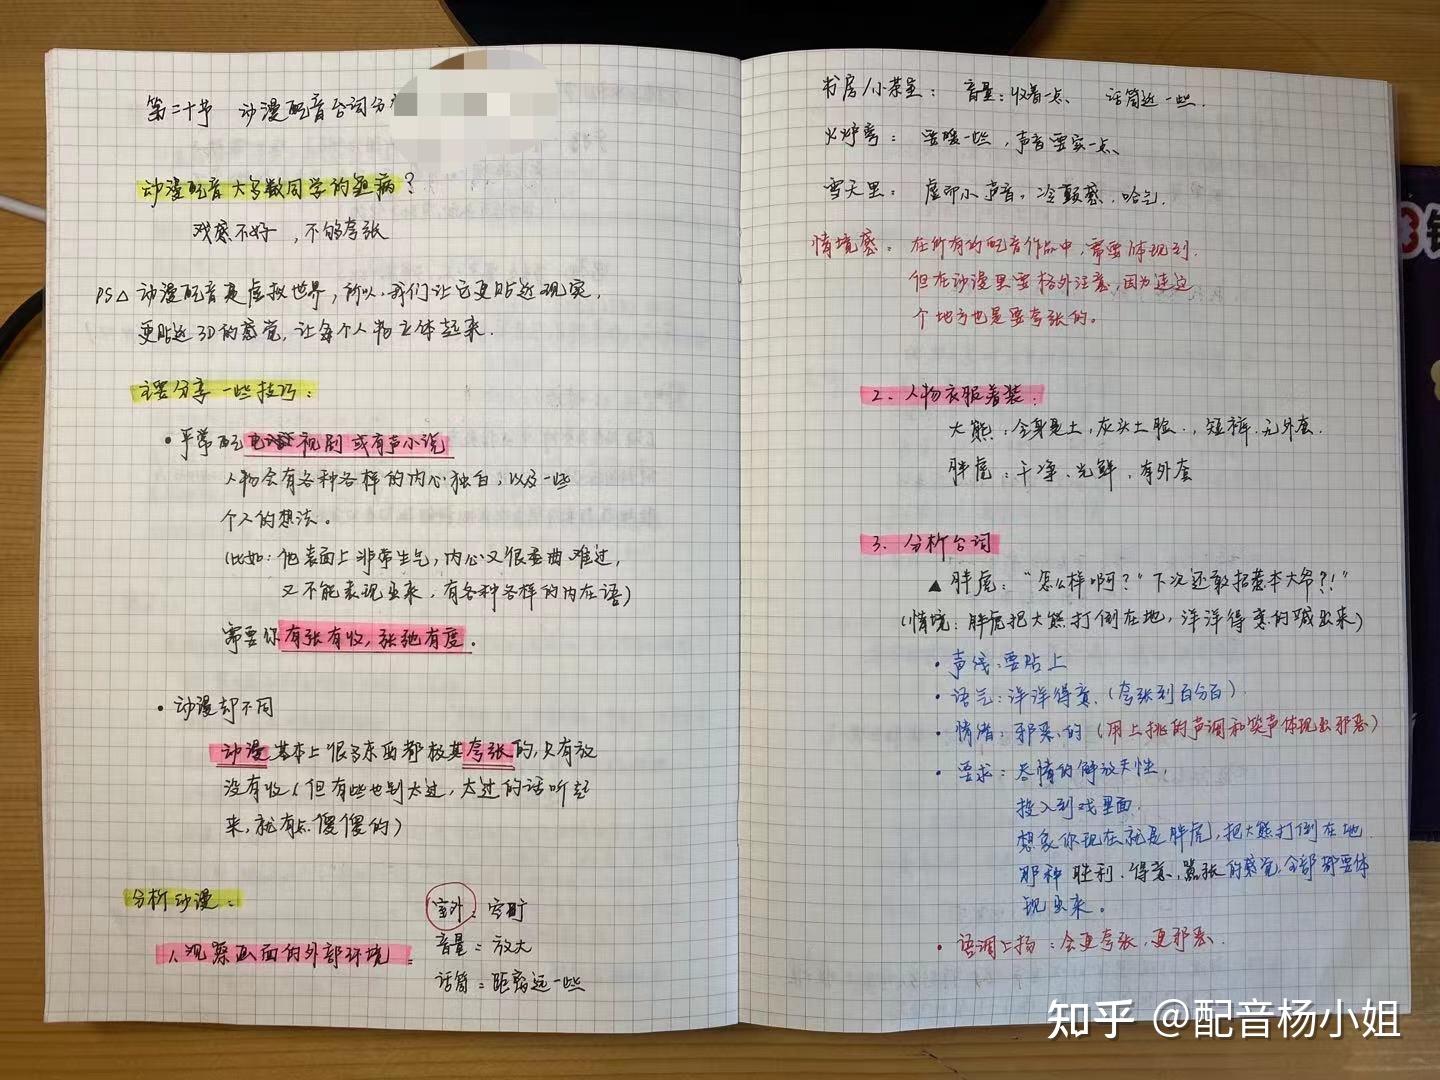 第二十节 动漫配音台词分
动漫配音大多数同学的通病？
戏感不好，不够夸张
PS△ 动漫配音是虚拟世界，所以，我们让它更贴近现实，
更贴近3D的感觉，让每个人物立体起来．
主要分享一些技巧：
• 平常配电视剧或有声小说
人物会有各种各样的内心独白，以及一些
个人的想法。
(比如：他表面上非常生气，内心又很委曲、难过，
又不能表现出来，有各种各样的内在语)
需要你有张有收，张弛有度．
• 动漫却不同
动漫基本上很多东西都极其夸张的，只有放
没有收（但有些也别太过，太过的话听起
来，就有点傻傻的）
分析动漫：
1. 观察画面的外部环境：
室外：空旷
音量：放大
话筒：距离远一些
书房/小茶室： 音量：收着一点、 话筒近一些．
火炉旁： 要暖一些，声音要实一点、
雪天里： 虚而小声音。冷颤感．哈气．
情境感： 在所有的配音作品中，需要体现到．
但在动漫里要格外注意，因为连这
个地方也是要夸张的。
2. 人物衣服着装：
大熊：全身是土，灰头土脸．，短裤．无外套．
胖虎：干净、光鲜，有外套
3. 分析台词
▲ 胖虎：“怎么样啊？”下次还敢招惹本大爷？！”
（情境：胖虎把大熊打倒在地，洋洋得意的喊出来）
• 声线：要贴上
• 语气：洋洋得意．（夸张到百分百）．
• 情绪：邪恶的（用上挑的声调和笑声体现出邪恶）
• 要求：尽情的解放天性，
投入到戏里面．
想象你现在就是胖虎，把大熊打倒在地．
那种胜利、得意、嚣张的感觉，全部都要体
现出来。
• 语调上扬：会更夸张，更邪恶．
知乎 @配音杨小姐